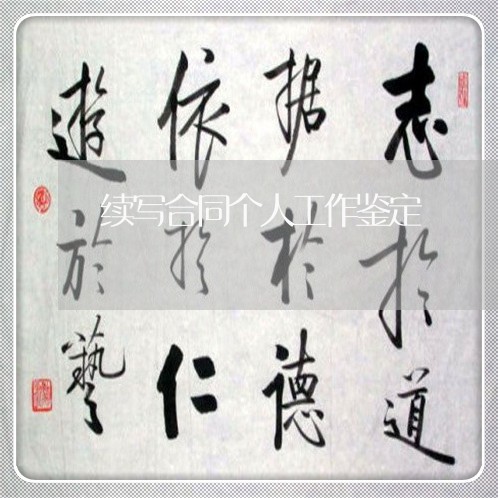 志於道
据於德
依於仁
遊於藝
续写合同个人工作鉴定